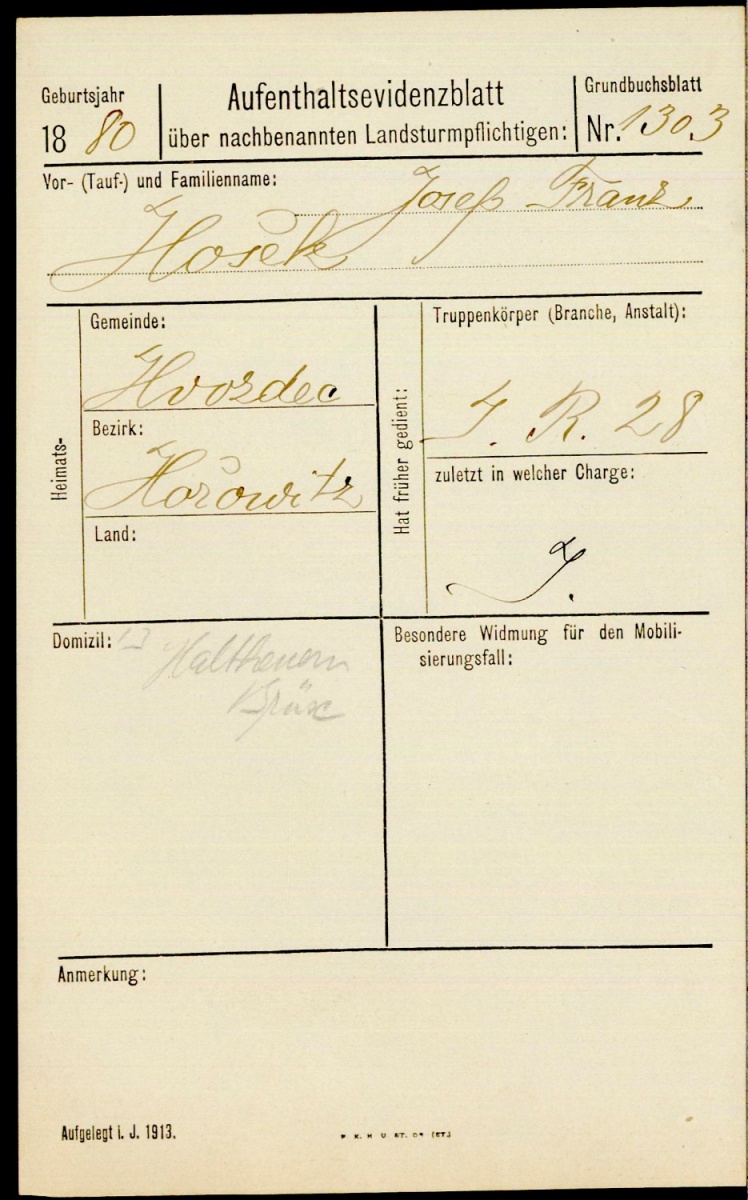 Geburtsjahr
1880
Aufenthaltsevidenzblatt
über nachbenannten Landsturmpflichtigen:
Grundbuchsblatt
Nr. 1303
Vor- (Tauf-) und Familienname:
Josef Franz
Hošek
Heimats-
Gemeinde:
Hvozdec
Bezirk:
Hořowitz
Land:
Hat früher gedient:
Truppenkörper (Branche, Anstalt):
I. R. 28
zuletzt in welcher Charge:
I.
Domizil:
Brüx
Besondere Widmung für den Mobili-
sierungsfall:
Anmerkung:
Aufgelegt i. J. 1913.